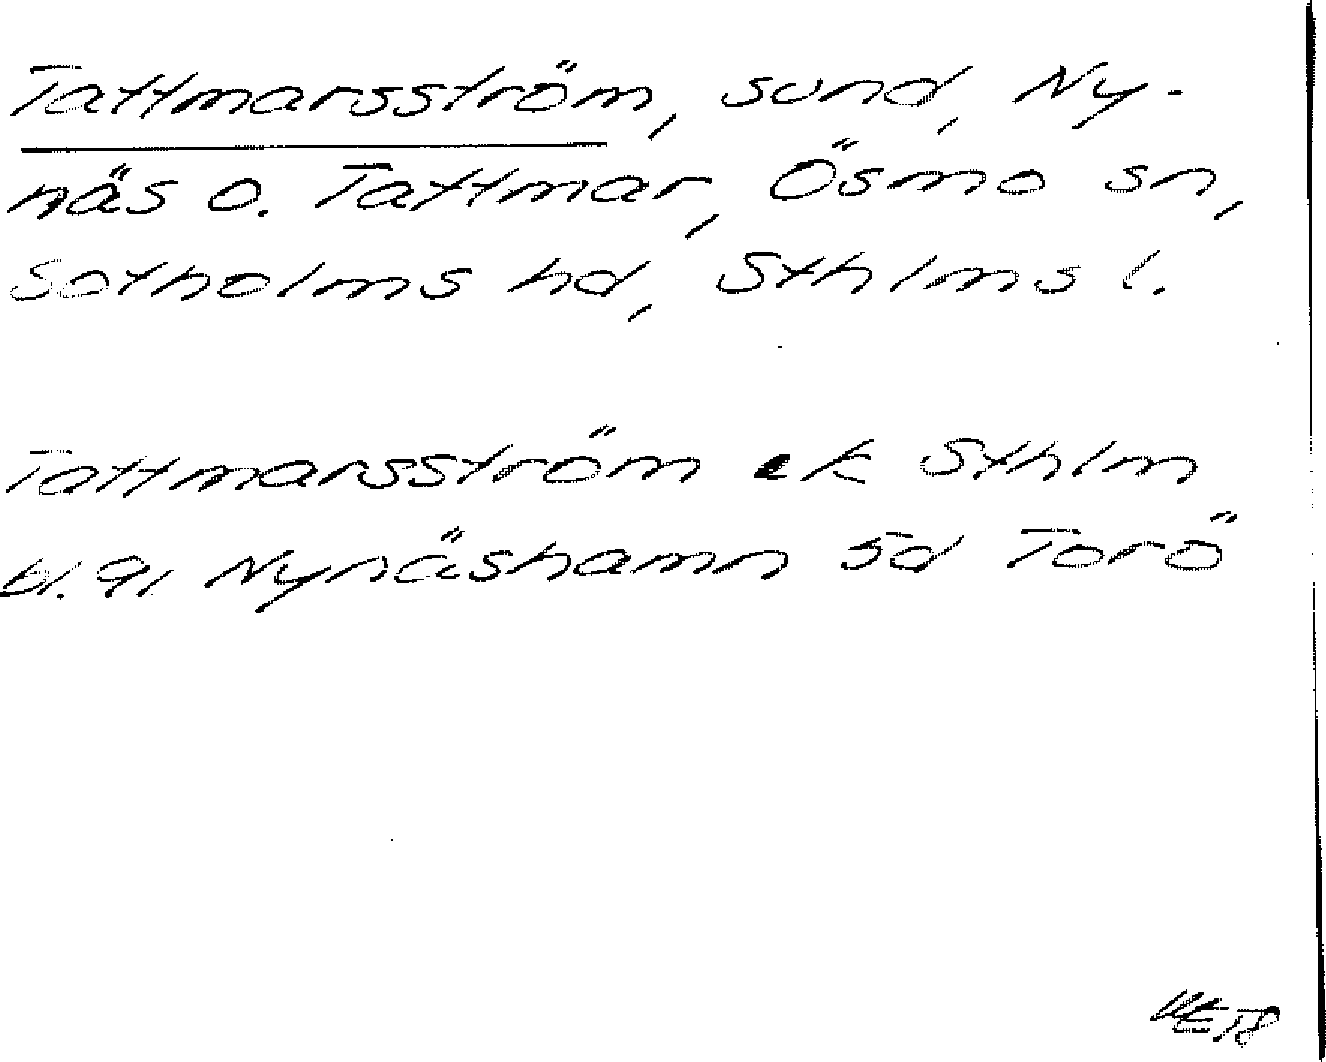 Tattmarsström, sund, Ny-
näs o. Tattmar, Ösmo sn,
Sotholms hd, Sthlms l.
Tattmarsström ek Sthlm
bl. 91 Nynäshamn 5d Torö